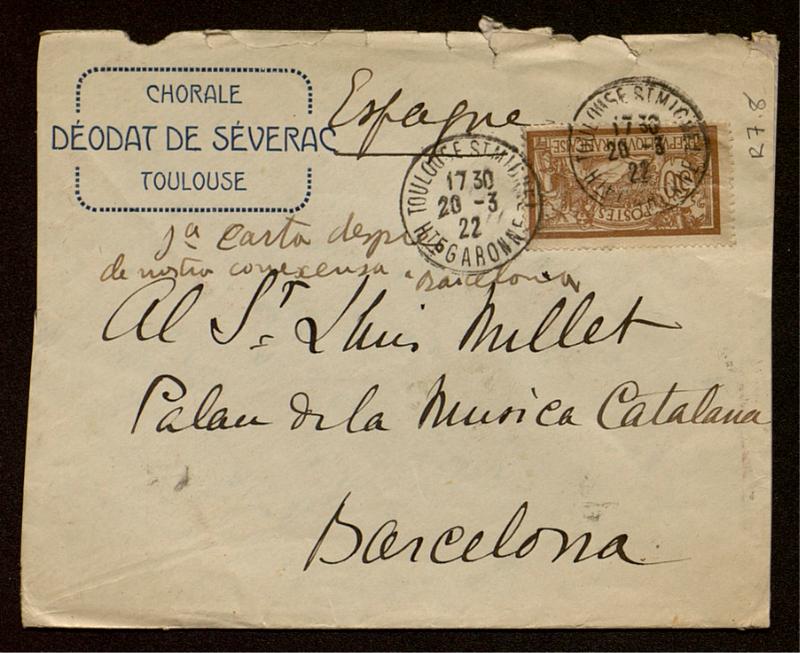 CHORALE
DÉODAT DE SÉVERAC
TOULOUSE
Espagne
TOULOUSE ST MICHEL
17 30
20 - 3
22
HTE GARONNE
TOULOUSE ST MICHEL
17 30
20 - 3
22
POSTES
R7.8
1a carta
de nostra conexensa a Barcelona
Al Sr. Lluis Millet
Palau de la Musica Catalana
Barcelona